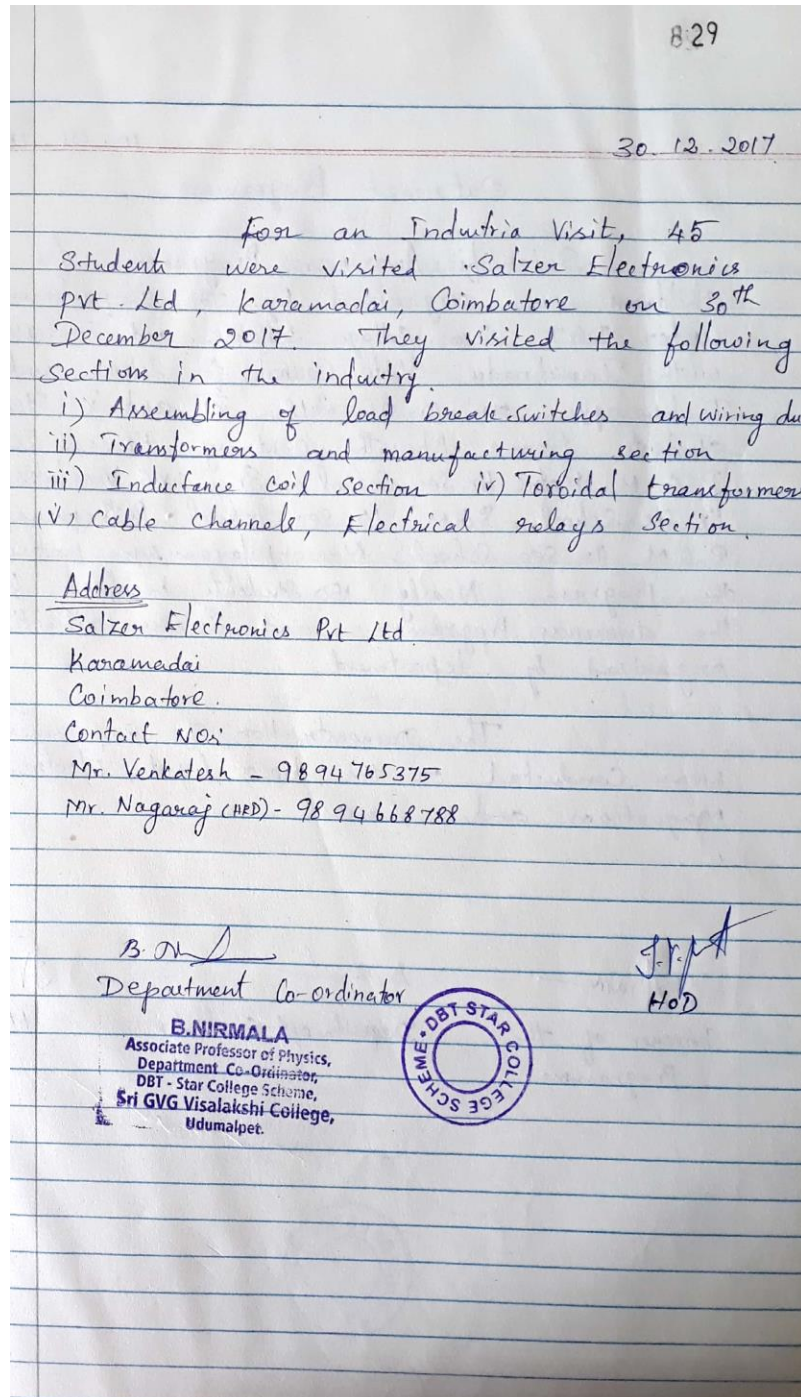 8:29
30.12.2017
For an Industria Visit, 45
Students were visited Salzer Electronics
Pvt. Ltd, Karamadai, Coimbatore on 30th
December 2017 They visited the following
Sections in the industry.
i) Assembling of load break switches and wiring du
ii) Transformers and manufacturing section
iii) Inductance coil section iv) Toroidal transformers
(v) Cable channels, Electrical relays Section.
Address
Salzer Electronics Pvt Ltd.
Karamadai
Coimbatore.
Contact NOs:
Mr. Venkatesh - 9894765375
Mr. Nagaraj (HRD) - 9894668788
Department Co-ordinator
HOD
B.NIRMALA
Associate Professor of Physics,
Department Co-Ordinator,
DBT - Star College Scheme,
Sri GVG Visalakshi College,
Udumalpet.
DBT STAR COLLEGE SCHEME